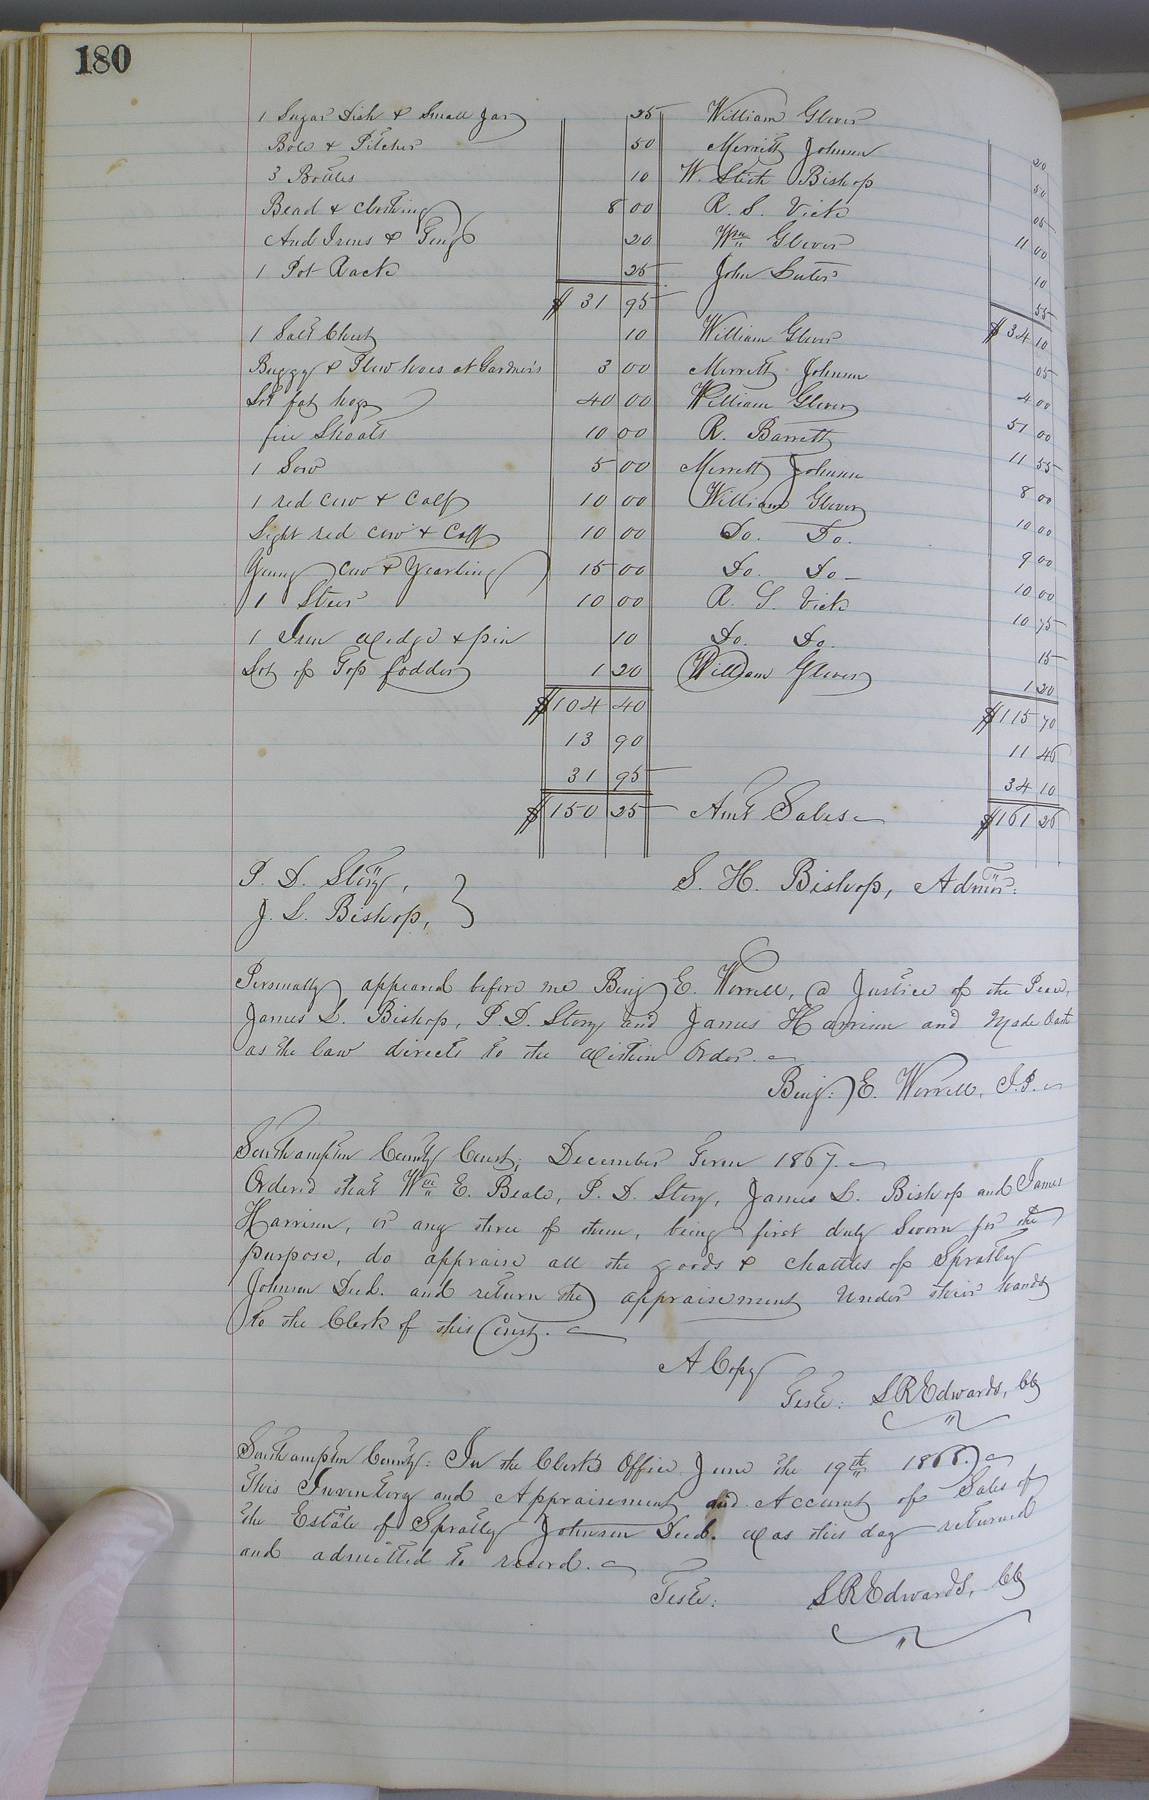 180
1 Sugar Dish & Small Jar 25 William Glover 20
Bole & Pitcher 50 Merritt Johnson 50
3 Bottles 10 W. Bishop 05
Bead & Clothing 8 00 R. S. Vick 11 00
And Irons & Tongs 20 Wm Glover 10
1 Pot Rack 25 John Suter 55
$31 95 $34 10
1 Salt Chest 10 William Glover 05
Buggy & Plow hoes at Gardner's 3 00 Merritt Johnson 4 00
Lot fat hogs 40 00 William Glover 51 00
five Shoats 10 00 R. Barrett 11 55
1 Sow 5 00 Merrett Johnson 8 00
1 red cow & Calf 10 00 William Glover 10 00
Light red cow & Calf 10 00 Do. Do. 9 00
Young cow & Yearling 15 00 Do. Do— 10 00
1 Steer 10 00 R. S. Vick 10 75
1 Iron wedge & pin 10 Do. Do. 15
Lot of Top fodder 1 20 William Glover 1 20
$104 40 $115 70
13 90 11 46
31 95 34 10
$150 25 Amt Sales $161 26
P. D. Story, S. H. Bishop, Admor:
J. L. Bishop,
Personally appeared before me Benj E. Worrell, a Justice of the Peace,
James L. Bishop, P. D. Story and James Harrison and Made Oath
as the law directs to the within Order.
Benj: E. Worrell, J.P.
Southampton County Court, December Term 1867.
Ordered that Wm E. Beale, P. D. Story, James L. Bishop and James
Harrison, or any three of them, being first duly Sworn for the
purpose, do appraise all the goods & chattles of Spratley
Johnson Decd. and return the appraisement Under their hands
to the Clerk of this Court.
A Copy
Teste: L R Edwards, Clk
Southampton County: In the Clerk's Office June the 19th 1868.
This Inventory and Appraisement and Account of Sales of
the Estate of Spratley Johnson Decd. was this day returned
and admitted to record.
Teste: L R Edwards, Clk